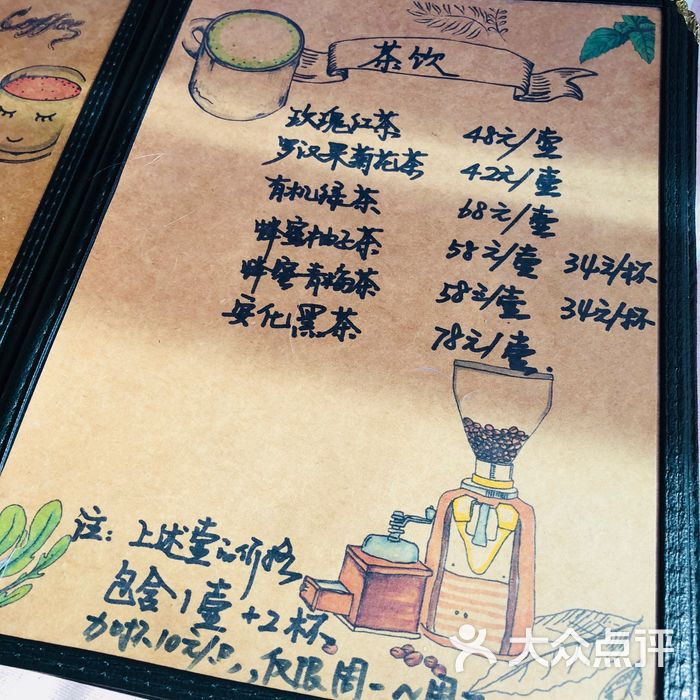 Coffee
茶饮
玫瑰红茶 48元/壶
罗汉果菊花茶 42元/壶
有机绿茶 68元/壶
蜂蜜柚子茶 58元/壶 34元/杯
蜂蜜青梅茶 58元/壶 34元/杯
安化黑茶 78元/壶.
注: 上述壶的价格
包含1壶+2杯
加杯10元/只,仅限周一~周
大众点评